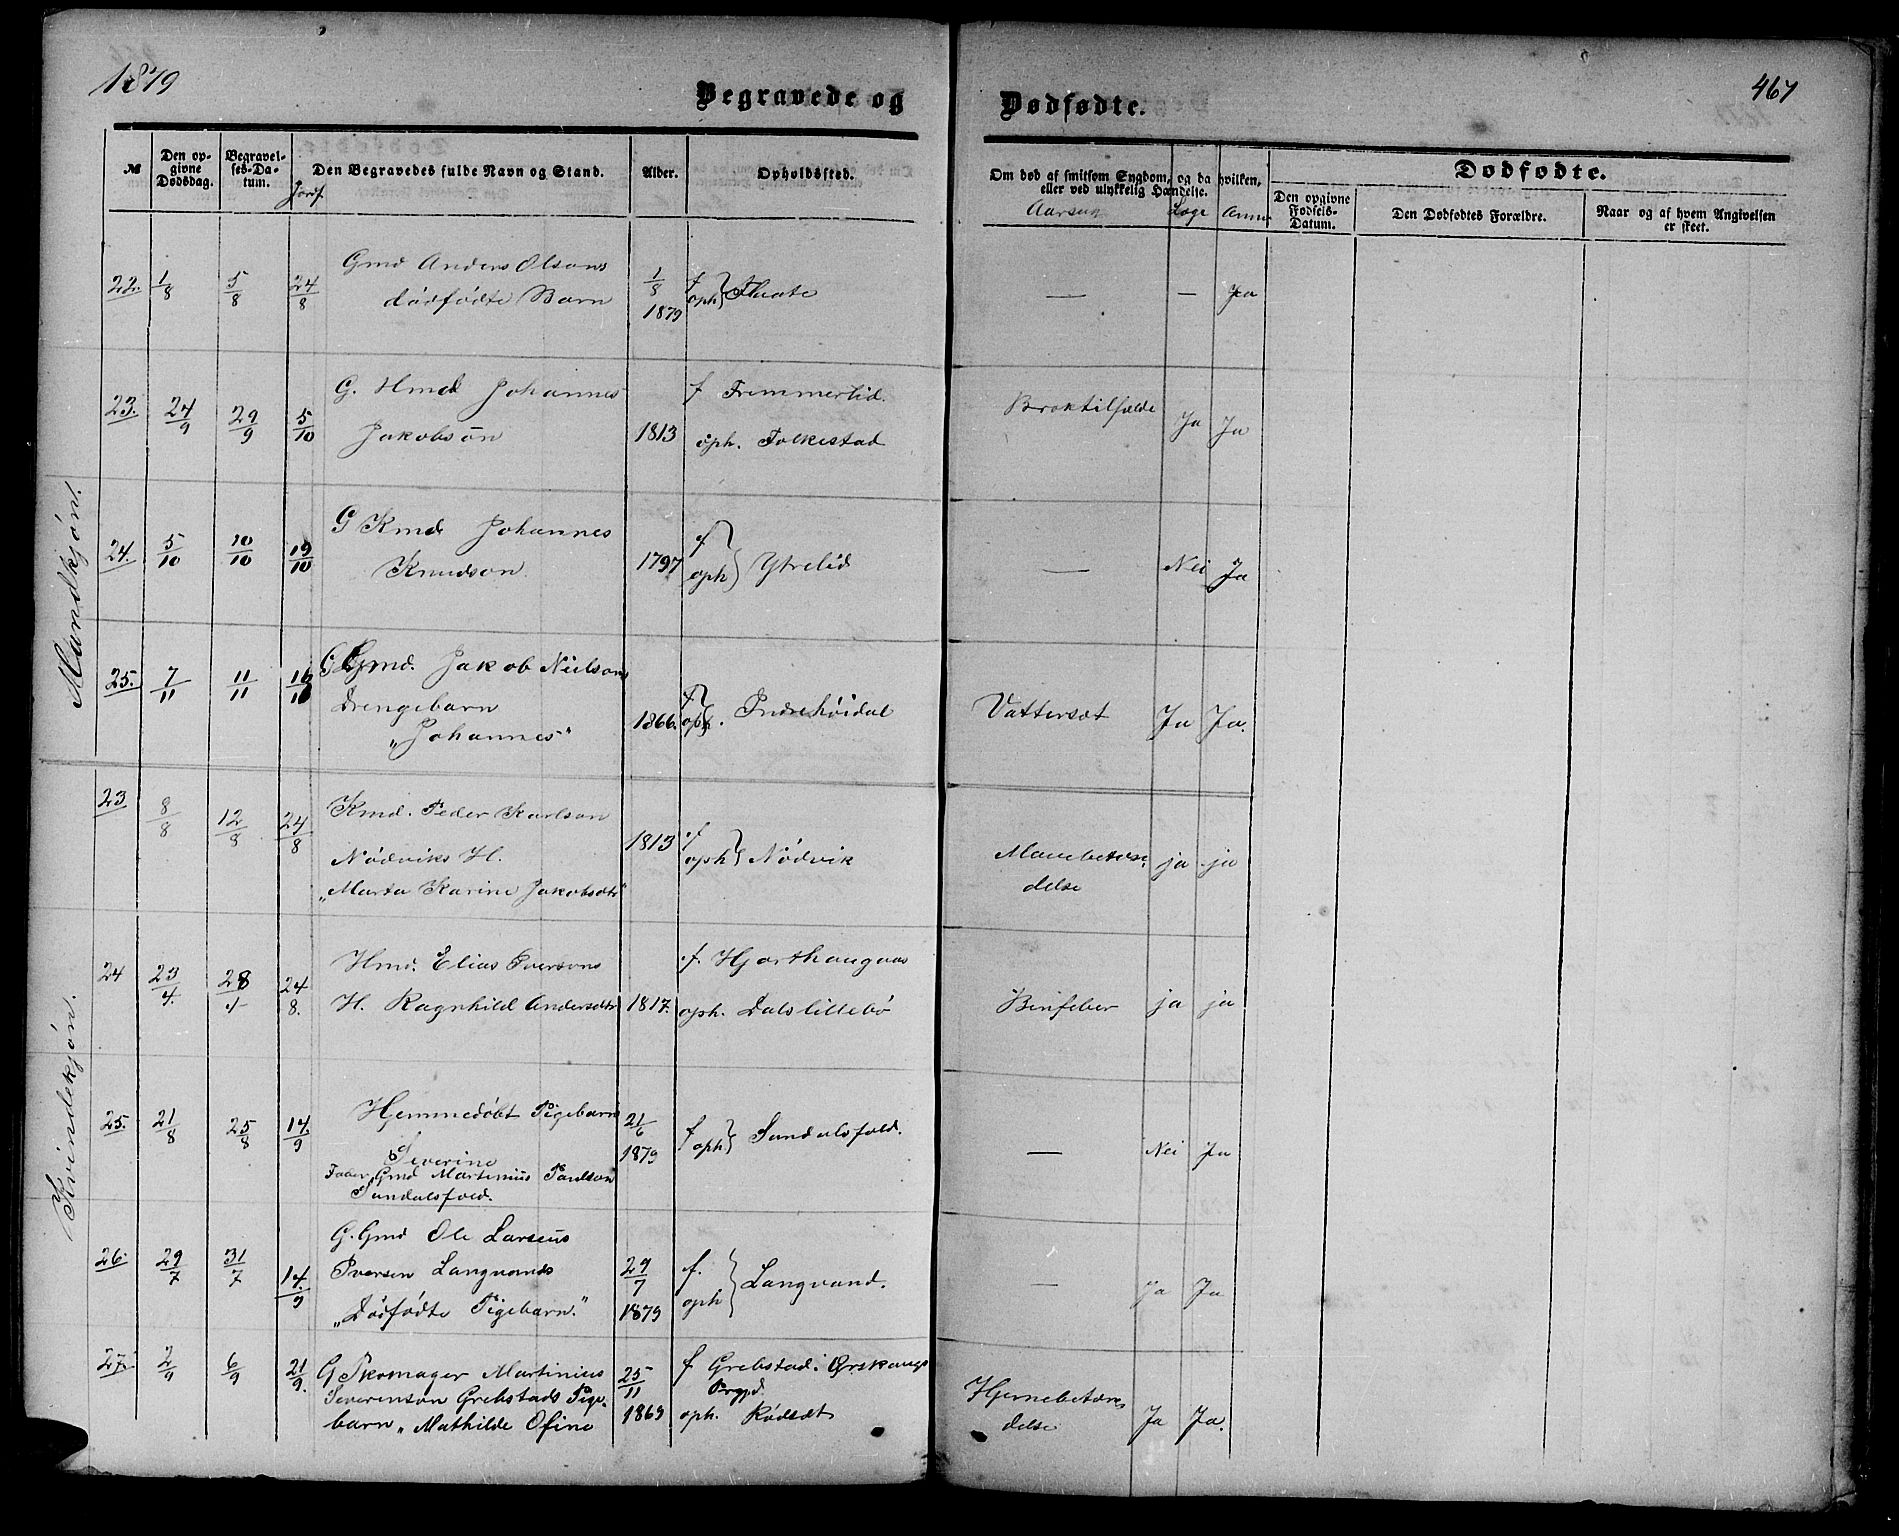 1879
467
Begravede og Dødfødte.
№
Den opgivne Dødsdag.
Begravelses-Datum.
Jordf.
Den Begravedes fulde Navn og Stand.
Alder.
Opholdssted.
Om død af smitsom Sygdom, og da hvilken, eller ved ulykkelig Hændelse.
Aarsag Læge Anm.
Dødfødte.
Den opgivne Fødsels-Datum.
Den Dødfødtes Forældre.
Naar og af hvem Angivelsen er skeet.
Mandkjøn.
22. 1/8 5/8 24/8 Gmd Anders Olsens 1/8 f
dødfødte Barn 1879 oph Flaate — — Ja
23. 24/9 29/9 5/10 G. Hmd Johannes f Fremmerlid. Broktilfælde Ja Ja
Jakobsøn 1813 oph. Folkestad
24. 5/10 10/10 19/10 G Kmd Johannes f
Knudsøn 1797 oph Ytrelid — Nei Ja
25. 7/11 11/11 16/11 G Gmd. Jakob Nielsøns f
Drengebarn 1866. oph. Indrehøidal Vattersot Ja Ja.
"Johannes"
Kvindekjøn.
23 8/8 12/8 24/8 Kmd. Peder Karlsøn 1813 f
Nødviks H. oph Nødvik Mavebetæn- ja ja
"Marta Karine Jakobsdtr" delse
24 23/4. 28/4 24/8. Hmd. Elias Iversøns f. Hjorthaugaas
H. Ragnhild Andersdtr 1817. oph. Dalslillebø ja ja
25. 21/8 25/8 14/9 Hjemmedøbt Pigebarn 21/6 f
Severine 1879 oph Sundalsfold. — Nei Ja
Fader Gmd Martinus Paulsøn
Sundalsfold.
26. 29/7 31/7 14/9 G. Gmd Ole Larsens
Iversen Langvands 29/7 f.
"Dødfødte Pigebarn." 1879 oph Langvand. — ja Ja
27. 2/9 6/9 21/9. G Skomager Martinius 25/11 f Grebstad i Ørskougs
Severensøn Grebstads Pige- Prgjd.
barn "Mathilde Ofine 1869 oph. Rødsæt Hjernebetæn- Ja Ja.
delse